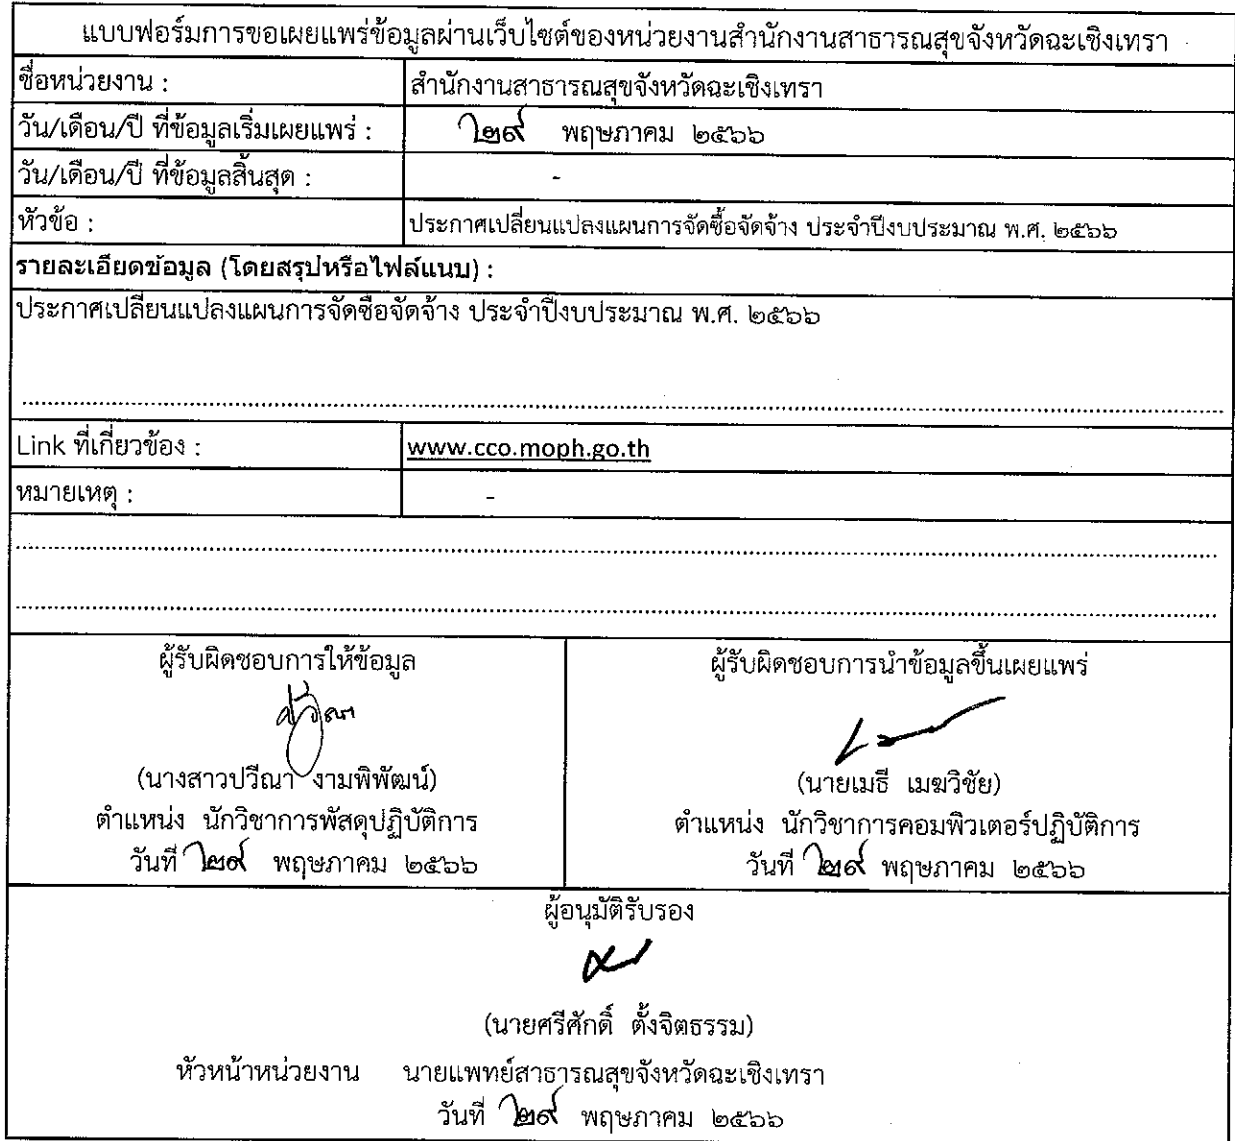 แบบฟอร์มการขอเผยแพร่ข้อมูลผ่านเว็บไซต์ของหน่วยงานสำนักงานสาธารณสุขจังหวัดฉะเชิงเทรา
ชื่อหน่วยงาน : สำนักงานสาธารณสุขจังหวัดฉะเชิงเทรา
วัน/เดือน/ปี ที่ข้อมูลเริ่มเผยแพร่ : ๒๙ พฤษภาคม ๒๕๖๖
วัน/เดือน/ปี ที่ข้อมูลสิ้นสุด : -
หัวข้อ : ประกาศเปลี่ยนแปลงแผนการจัดซื้อจัดจ้าง ประจำปีงบประมาณ พ.ศ. ๒๕๖๖
รายละเอียดข้อมูล (โดยสรุปหรือไฟล์แนบ) :
ประกาศเปลี่ยนแปลงแผนการจัดซื้อจัดจ้าง ประจำปีงบประมาณ พ.ศ. ๒๕๖๖
Link ที่เกี่ยวข้อง : www.cco.moph.go.th
หมายเหตุ : -
ผู้รับผิดชอบการให้ข้อมูล
ปวีณา
(นางสาวปวีณา งามพิพัฒน์)
ตำแหน่ง นักวิชาการพัสดุปฏิบัติการ
วันที่ ๒๙ พฤษภาคม ๒๕๖๖
ผู้รับผิดชอบการนำข้อมูลขึ้นเผยแพร่
(นายเมธี เมฆวิชัย)
ตำแหน่ง นักวิชาการคอมพิวเตอร์ปฏิบัติการ
วันที่ ๒๙ พฤษภาคม ๒๕๖๖
ผู้อนุมัติรับรอง
(นายศรีศักดิ์ ตั้งจิตธรรม)
หัวหน้าหน่วยงาน นายแพทย์สาธารณสุขจังหวัดฉะเชิงเทรา
วันที่ ๒๙ พฤษภาคม ๒๕๖๖